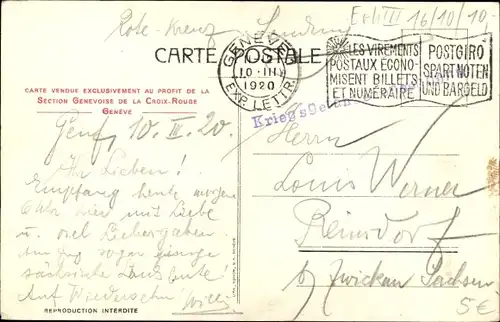 Rote-Kreuz Sendung
16/10/10
CARTE POSTALE
GENÈVE
10.III
1920
EXP. LETTR.
LES VIREMENTS
POSTAUX ÉCONO-
MISENT BILLETS
ET NUMÉRAIRE
POSTGIRO
SPART NOTEN
UND BARGELD
CARTE VENDUE EXCLUSIVEMENT AU PROFIT DE LA
SECTION GENEVOISE DE LA CROIX-ROUGE
GENÈVE
Genf, 10. III. 20.
Ihr Lieben!
Empfang heute morgen
6 Uhr hier mit Liebe
u. viel Liebesgaben.
Im Zug sogar einige
sächsische Landsleute
Auf Wiedersehn Willi
REPRODUCTION INTERDITE
Herrn
Louis Werner
Reinsdorf
b/ Zwickau Sachsen
5€